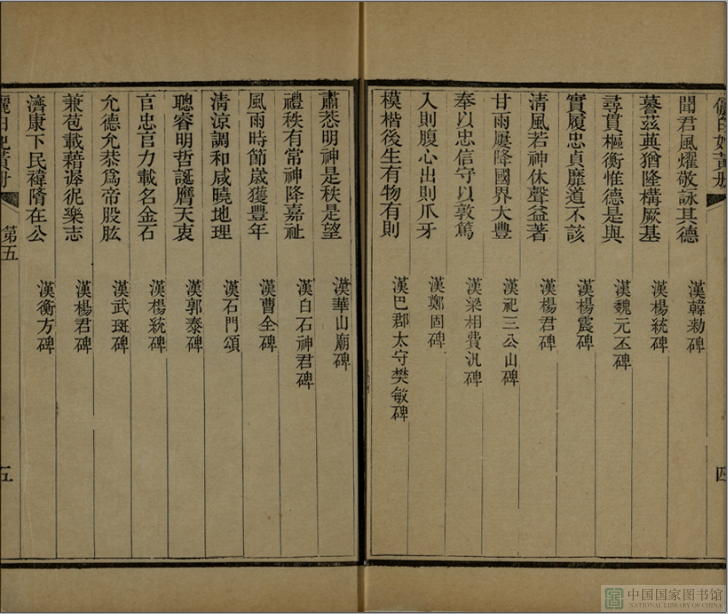 聞君風燿敬詠其德 漢韓勑碑
蓦茲英猶隆構厥基 漢楊統碑
尋貫樞衡惟德是與 漢魏元丕碑
實履忠貞靡道不該 漢楊震碑
清風若神休聲益著 漢楊君碑
甘雨屢降國界大豐 漢祀三公山碑
奉以忠信守以敦篤 漢梁相費汎碑
入則腹心出則爪牙 漢鄭固碑
模楷後生有物有則 漢巴郡太守樊敏碑
四
肅恭明神是秩是望 漢華山廟碑
禮秩有常神降嘉祉 漢白石神君碑
風雨時節歲獲豐年 漢曹全碑
清涼調和咸曉地理 漢石門頌
聰睿明哲誕膺天衷 漢郭泰碑
官忠官力載名金石 漢楊統碑
允德允恭爲帝股肱 漢武斑碑
兼苞載籍樂志 漢楊君碑
濟康下民褘隋在公 漢衡方碑
第五
五
中国国家图书馆
NATIONAL LIBRARY OF CHINA